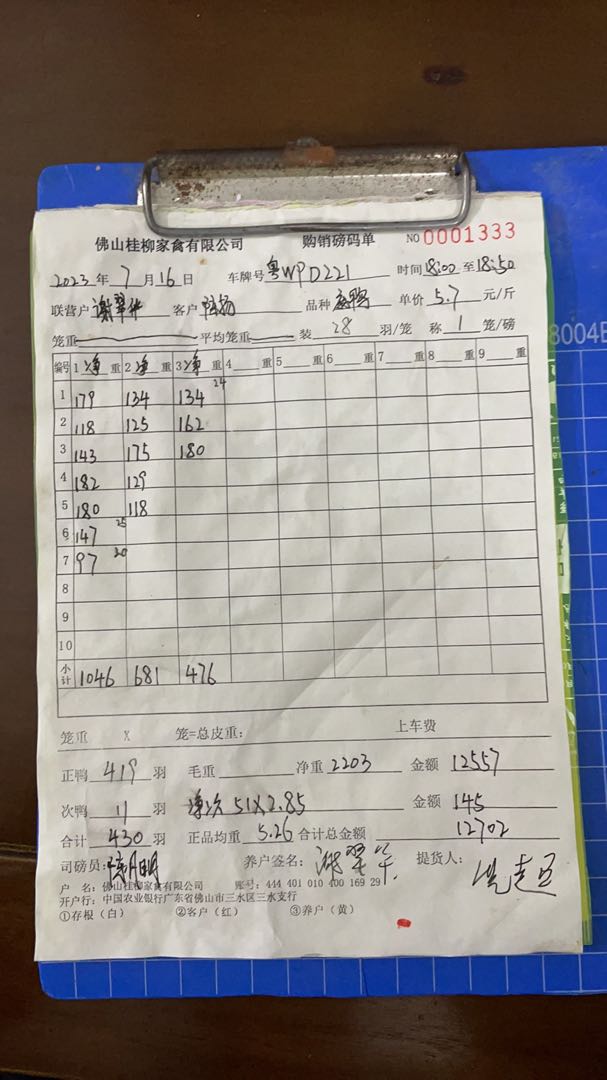 佛山桂柳家禽有限公司 购销磅码单 NO 0001333
2023年 7月16日 车牌号 粤WPD221 时间 18:00 至 18:50
联营户 谢翠 客户 品种 单价 5.7 元/斤
笼重 平均笼重 装 28 羽/笼 称 1 笼/磅
编号 1 净 重 2 净 重 3 净 重 4 重 5 重 6 重 7 重 8 重 9 重
1 179 134 134 24
2 118 125 162
3 143 175 180
4 182 129
5 180 118
6 147 25
7 97 20
8
9
10
小计 1046 681 476
笼重 X 笼=总皮重: 上车费
正鸭 419 羽 毛重 净重 2203 金额 12557
次鸭 11 羽 净次 51X2.85 金额 145
合计 430 羽 正品均重 5.26 合计总金额 12702
司磅员: 养户签名: 提货人:
户 名: 佛山桂柳家禽有限公司 账号: 444 401 010 400 169 29
开户行: 中国农业银行广东省佛山市三水区三水支行
①存根(白) ②客户(红) ③养户(黄)
8004